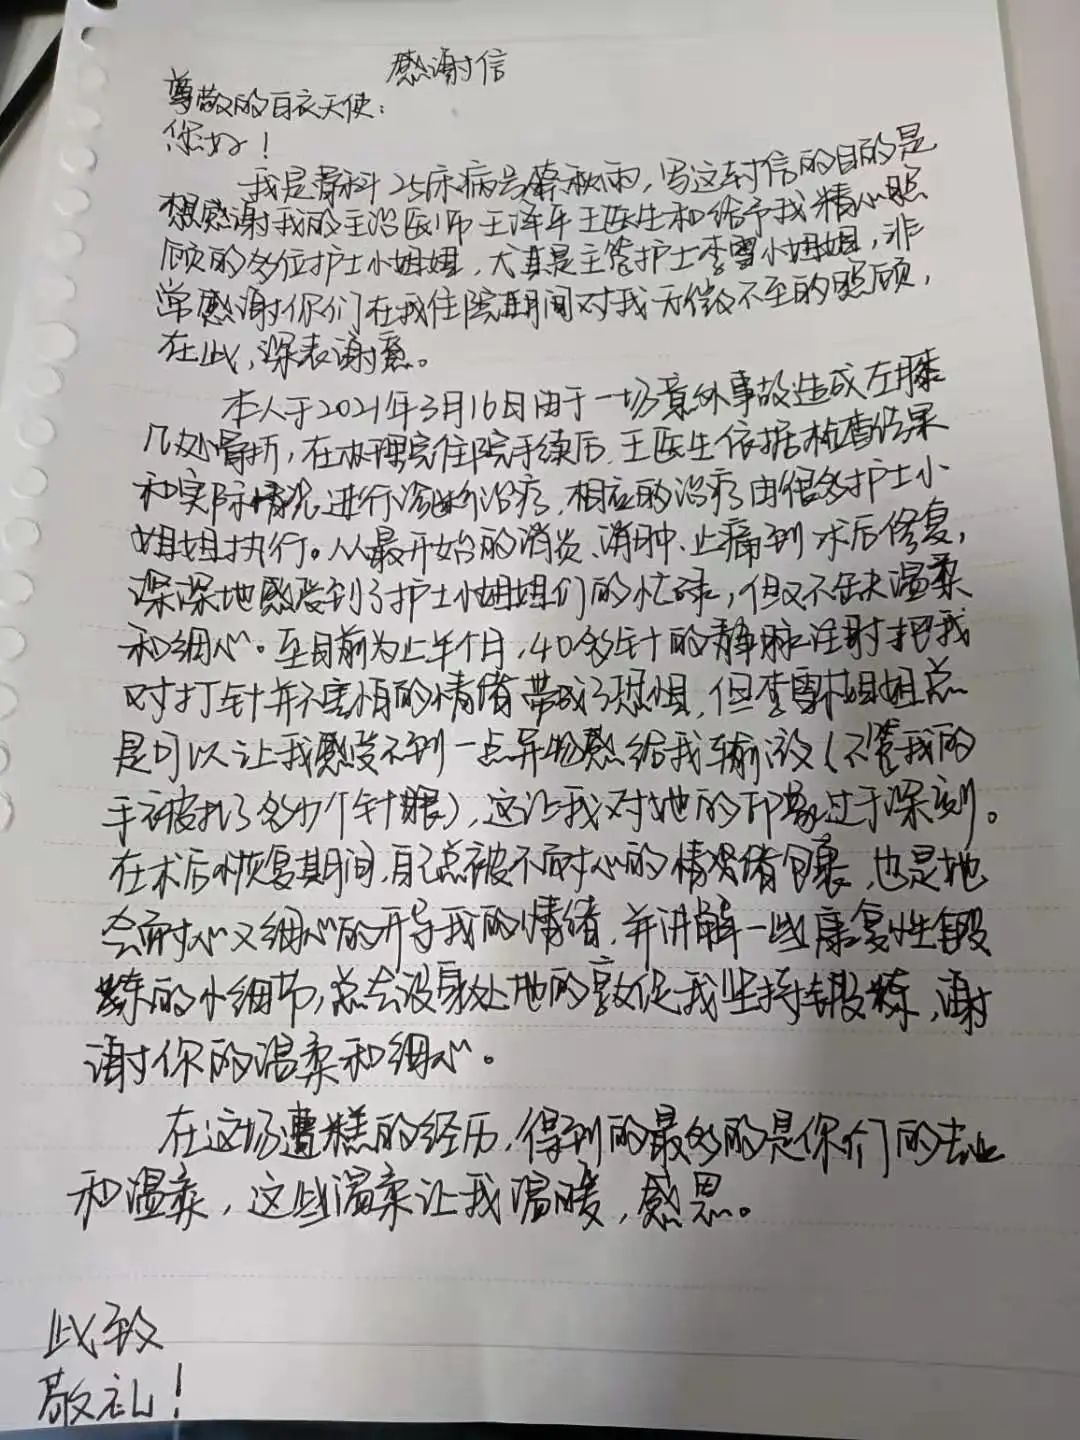 感谢信
尊敬的白衣天使：
您好！
我是骨科25床病号秋雨，写这封信的目的是
想感谢我的主治医师王泽平王医生和给予我精心照
顾的多位护士小姐姐，尤其是主管护士李雪小姐姐，非
常感谢你们在我住院期间对我无微不至的照顾，
在此，深表谢意。
本人于2021年3月16日由于一场意外事故造成左膝
几处骨折，在办理完住院手续后，王医生依据检查结果
和实际情况进行诊断治疗，相应的治疗由很多护士小
姐姐执行。从最开始的消炎、消肿、止痛到术后修复，
深深地感受到了护士小姐姐们的忙碌，但又不缺温柔
和细心。至目前为止半个月，40多针的静脉注射把我
对打针并不害怕的情绪带成了恐惧，但李雪小姐姐总
是可以让我感受不到一点异物感给我输液（不管我的
手被扎了多少个针眼），这让我对她的印象过于深刻。
在术后恢复期间，自己总被不耐心的情绪包裹，也是她
会耐心又细心的开导我的情绪，并讲解一些康复性锻
炼的小细节，总会设身处地的敦促我坚持锻炼，谢
谢你的温柔和细心。
在这场遭糕的经历，得到的最多的是你们的专业
和温柔，这些温柔让我温暖，感恩。
此致
敬礼！